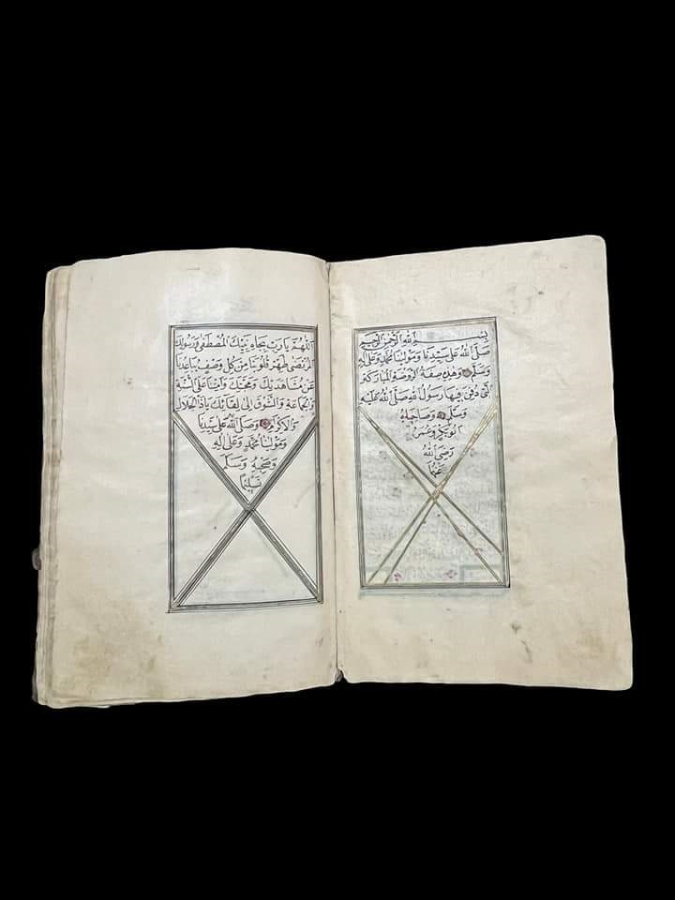 بسم الله الرحمن الرحيم
صلى الله على سيدنا ومولانا محمد وعلى آله
وسلم وهذه صفة الروضة المباركة
التي دفن فيها رسول الله صلى الله عليه
وسلم وصاحباه
ابو بكر وعمر
رضي الله
عنهما
اللهم يا رب بجاه نبيك المصطفى ورسولك
المرتضى طهر قلوبنا من كل وصف يباعدنا
عن مشاهدتك ومحبتك وامتنا على السنة
والجماعة والشوق الى لقائك يا ذا الجلال
والاكرام وصلى الله على سيدنا
ومولانا محمد وعلى آله
وصحبه وسلم
تسليما